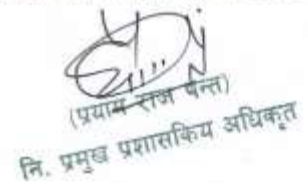 (प्रयाम राज पन्त)
नि. प्रमुख प्रशासकिय अधिकृत